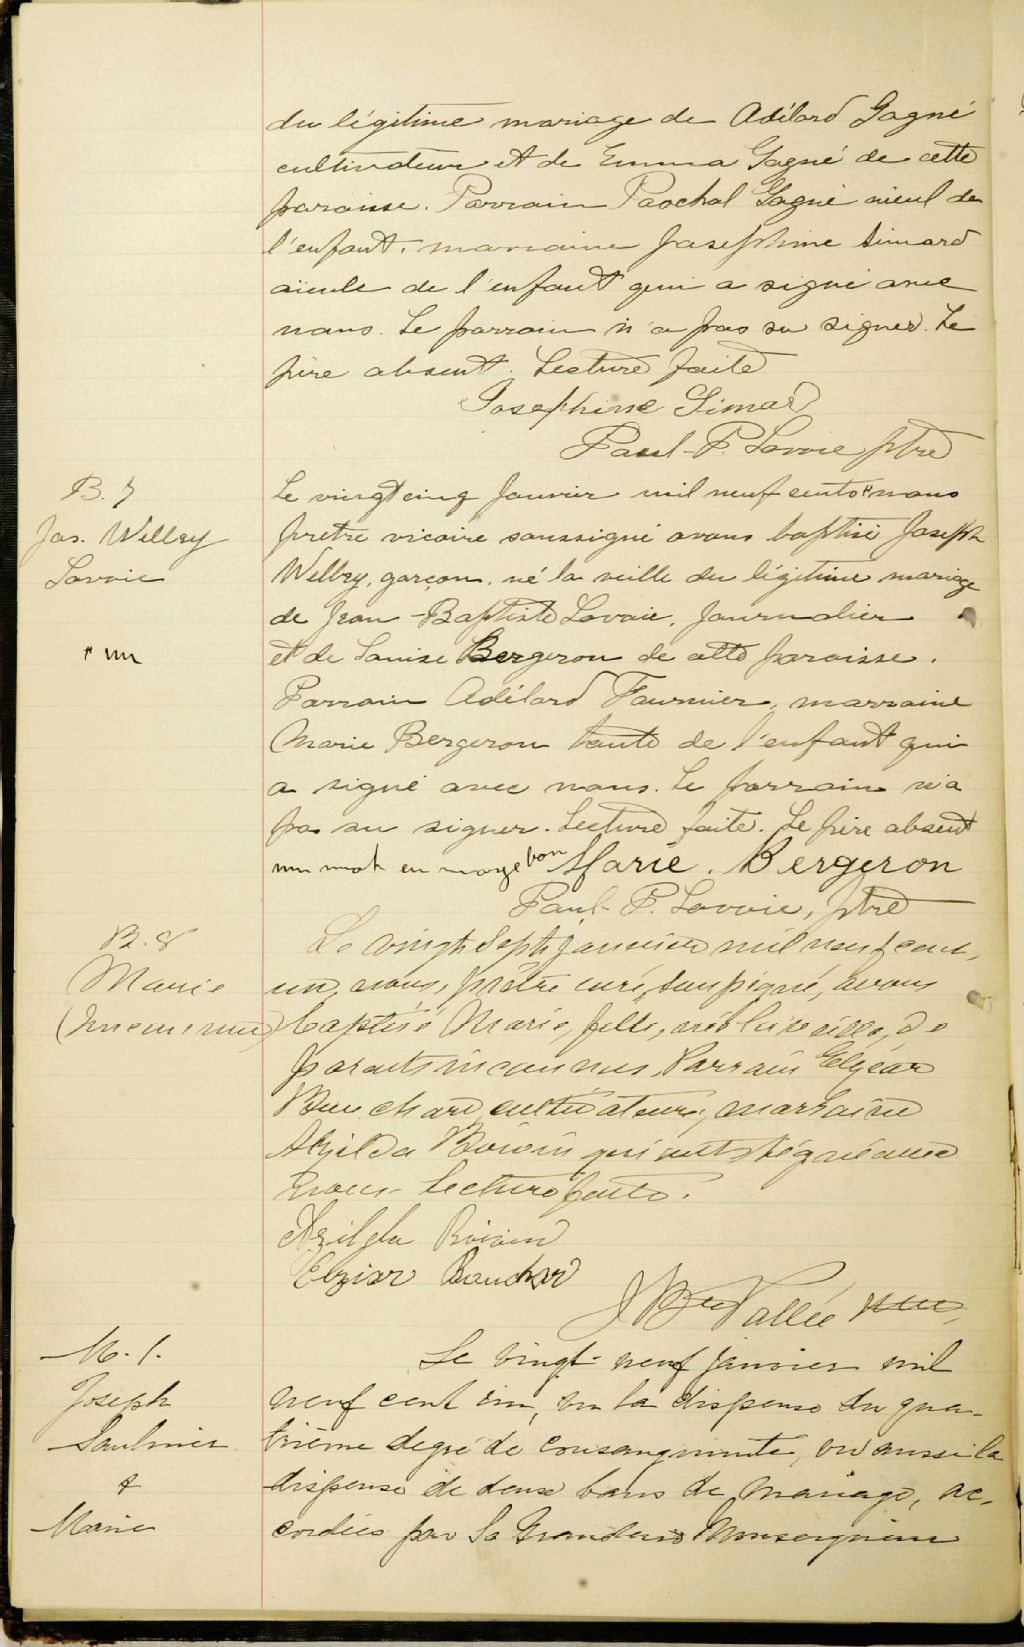 du légitime mariage de Adélard Gagné
cultivateur et de Emma Gagné de cette
paroisse. Parrain Paschal Gagné aïeul de
l'enfant, marraine Josephine Simard
aïeule de l'enfant qui a signé avec
nous. Le parrain n'a pas su signer. Le
père absent. Lecture faite
Josephine Simard
Paul-P. Lavoie ptre
B. 7
Jos. Welley
Lavoie
* un
Le vingt cinq Janvier mil neuf cents * nous
prêtre vicaire soussigné avons baptisé Joseph
Welley, garçon, né la veille du légitime mariage
de Jean-Baptiste Lavoie, Journalier
et de Louise Bergeron de cette paroisse.
Parrain Adélard Fournier, marraine
Marie Bergeron tante de l'enfant qui
a signé avec nous. Le parrain n'a
pas su signer. Lecture faite. Le père absent
un mot en marge bon Marie. Bergeron
Paul-P. Lavoie, ptre
B. 8
Marie
(Inconnue)
Le vingt Sept janvier mil neuf cent
un, nous, prêtre curé, soussigné, avons
baptisé Marie, fille, née la veille, de
parents inconnus, Parrain Elzéar
Bouchard cultivateur, marraine
Azilda Boivin qui ont signé avec
nous. Lecture faite.
Azilda Boivin
Elziar Bouchard
J Bte Vallée
M. 1.
Joseph
Saulnier
&
Marie
Le vingt-neuf janvier mil
neuf cent un, vu la dispense du qua-
trième degré de consanguinité, vu aussi la
dispense de deux bans de mariage, ac-
cordées par Sa Grandeur Monseigneur